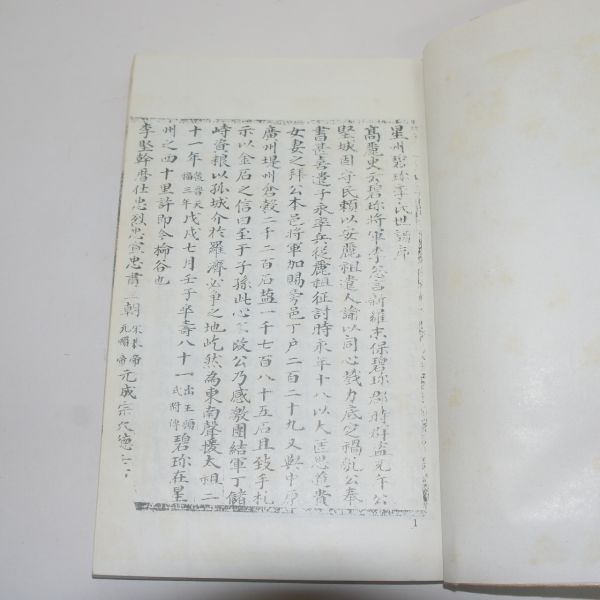 星州碧珍李氏世譜序
高麗史云碧珍將軍李怱言新羅末保碧珍郡時群盜充斥公
堅城固守民賴以安麗祖遣人諭以同心戮力底定禍亂公奉
書甚喜遣子永率兵從麗祖征討時永年十八以大匡思道貴
女妻之拜公本邑將軍加賜旁邑丁戶二百二十九又與中原
廣州堤州倉穀二千二百石塩一千七百八十五石且致手札
示以金石之信曰至于子孫此心不改公乃感激團結軍丁儲
峙資粮以孫城介於羅濟必爭之地屹然為東南聲援太祖二
十一年後晉天福三年戊戌七月壬子卒壽八十一出王順式附傳碧珍在星
州之四十里許即今椧谷也
李堅幹曆仕忠烈忠宣忠肅三朝元成宗大德
1